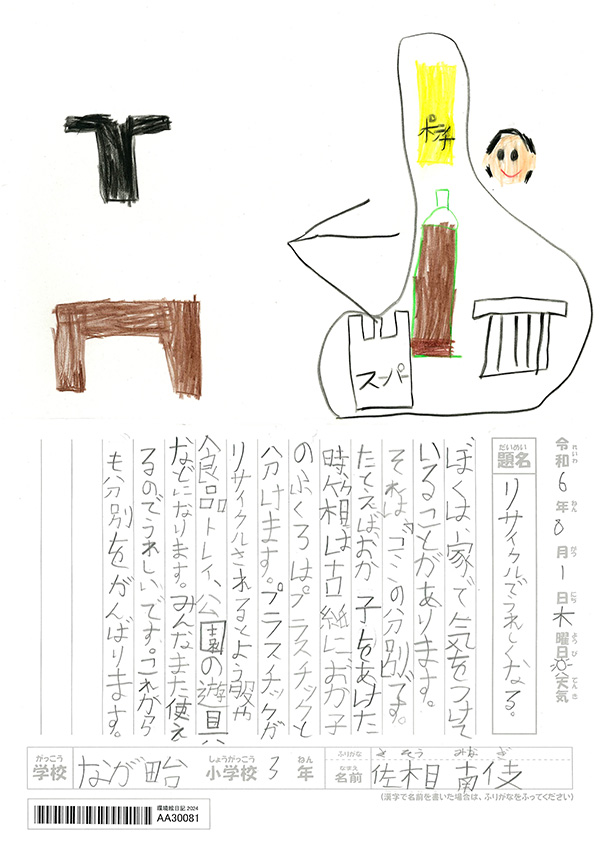 ポテチ
スーパー
令和6年8月1日木曜日 天気
れいわ ねん がつ にち ようび てんき
だいめい
題名
リサイクルでうれしくなる。
ぼくは、家で気をつけて
いることがあります。
それは、「ゴミの分別」です。
たとえばおか子をあけた
時箱は古紙におか子
のふくろはプラスチックと
分けます。プラスチックが
リサイクルされるとよう服や
食品トレイ、公園の遊具
などになります。みんなまた使え
るのでうれしいです。これから
も分別をがんばります。
がっこう
学校
なが
しょうがっこう
小学校
3
ねん
年
ふりがな
なまえ
名前
さそう みなぎ
佐相 南
(漢字で名前を書いた場合は、ふりがなをふってください)
環境絵日記 2024
AA30081